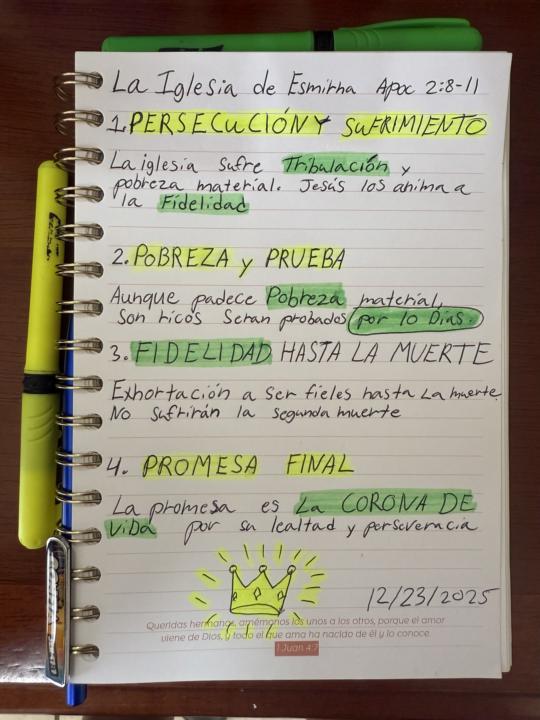 La Iglesia de Esmirna Apoc 2:8-11
1. PERSECUCIÓN Y SUFRIMIENTO
La iglesia sufre Tribulación y
pobreza material. Jesús los anima a
la Fidelidad
2. POBREZA y PRUEBA
Aunque padece Pobreza material,
son ricos Seran probados por 10 Dias.
3. FIDELIDAD HASTA LA MUERTE
Exhortación a ser fieles hasta La muerte
No sufrirán la segunda muerte
4. PROMESA FINAL
La promesa es La CORONA DE
Viba por su lealtad y perseveracia
12/23/2025
Queridas hermanos, amémonos los unos a los otros, porque el amor
viene de Dios, y todo el que ama ha nacido de él y lo conoce.
1 Juan 4:7